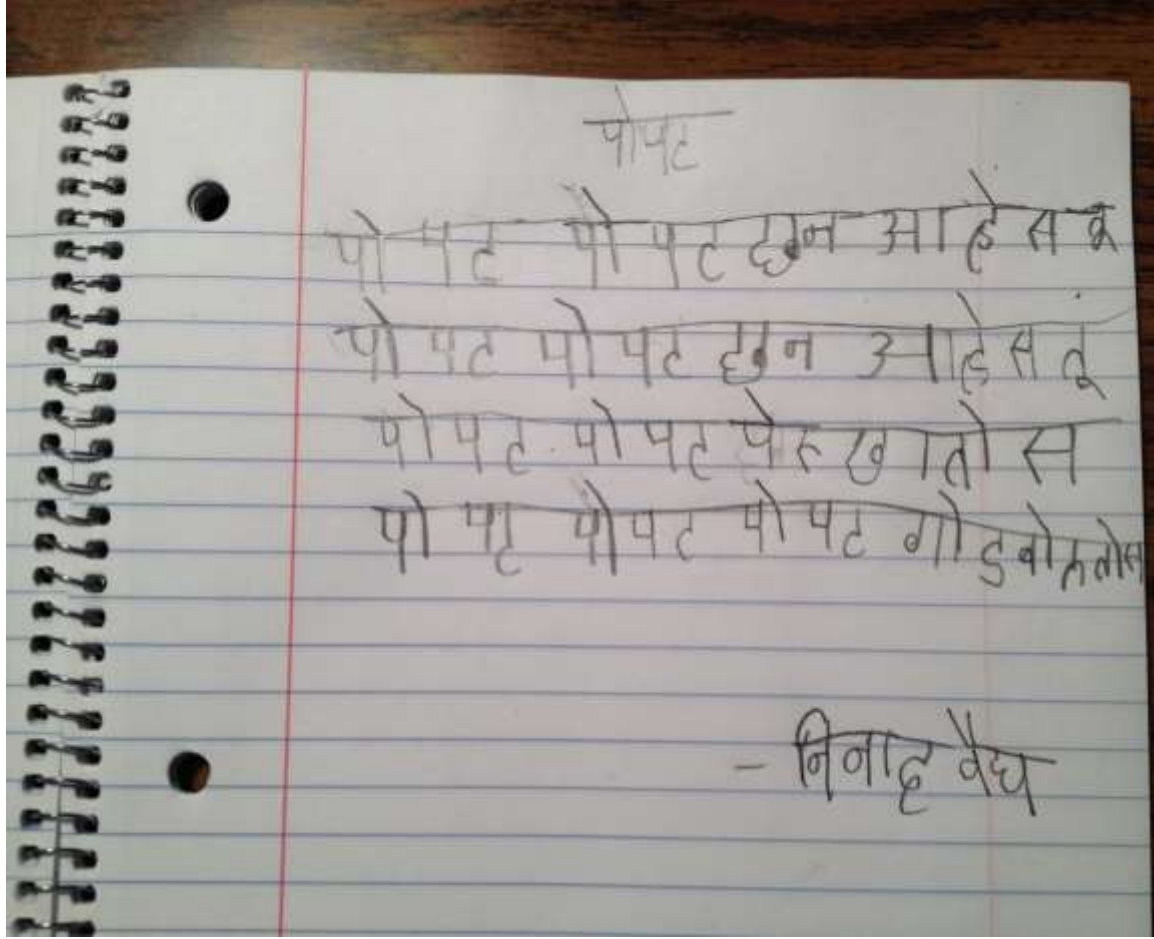 पोपट
पोपट पोपट छान आहेस तू
पोपट पोपट छान आहेस तू
पोपट पोपट पेरू खातोस
पोपट पोपट पोपट गोड बोलतोस
- निनाद वैद्य